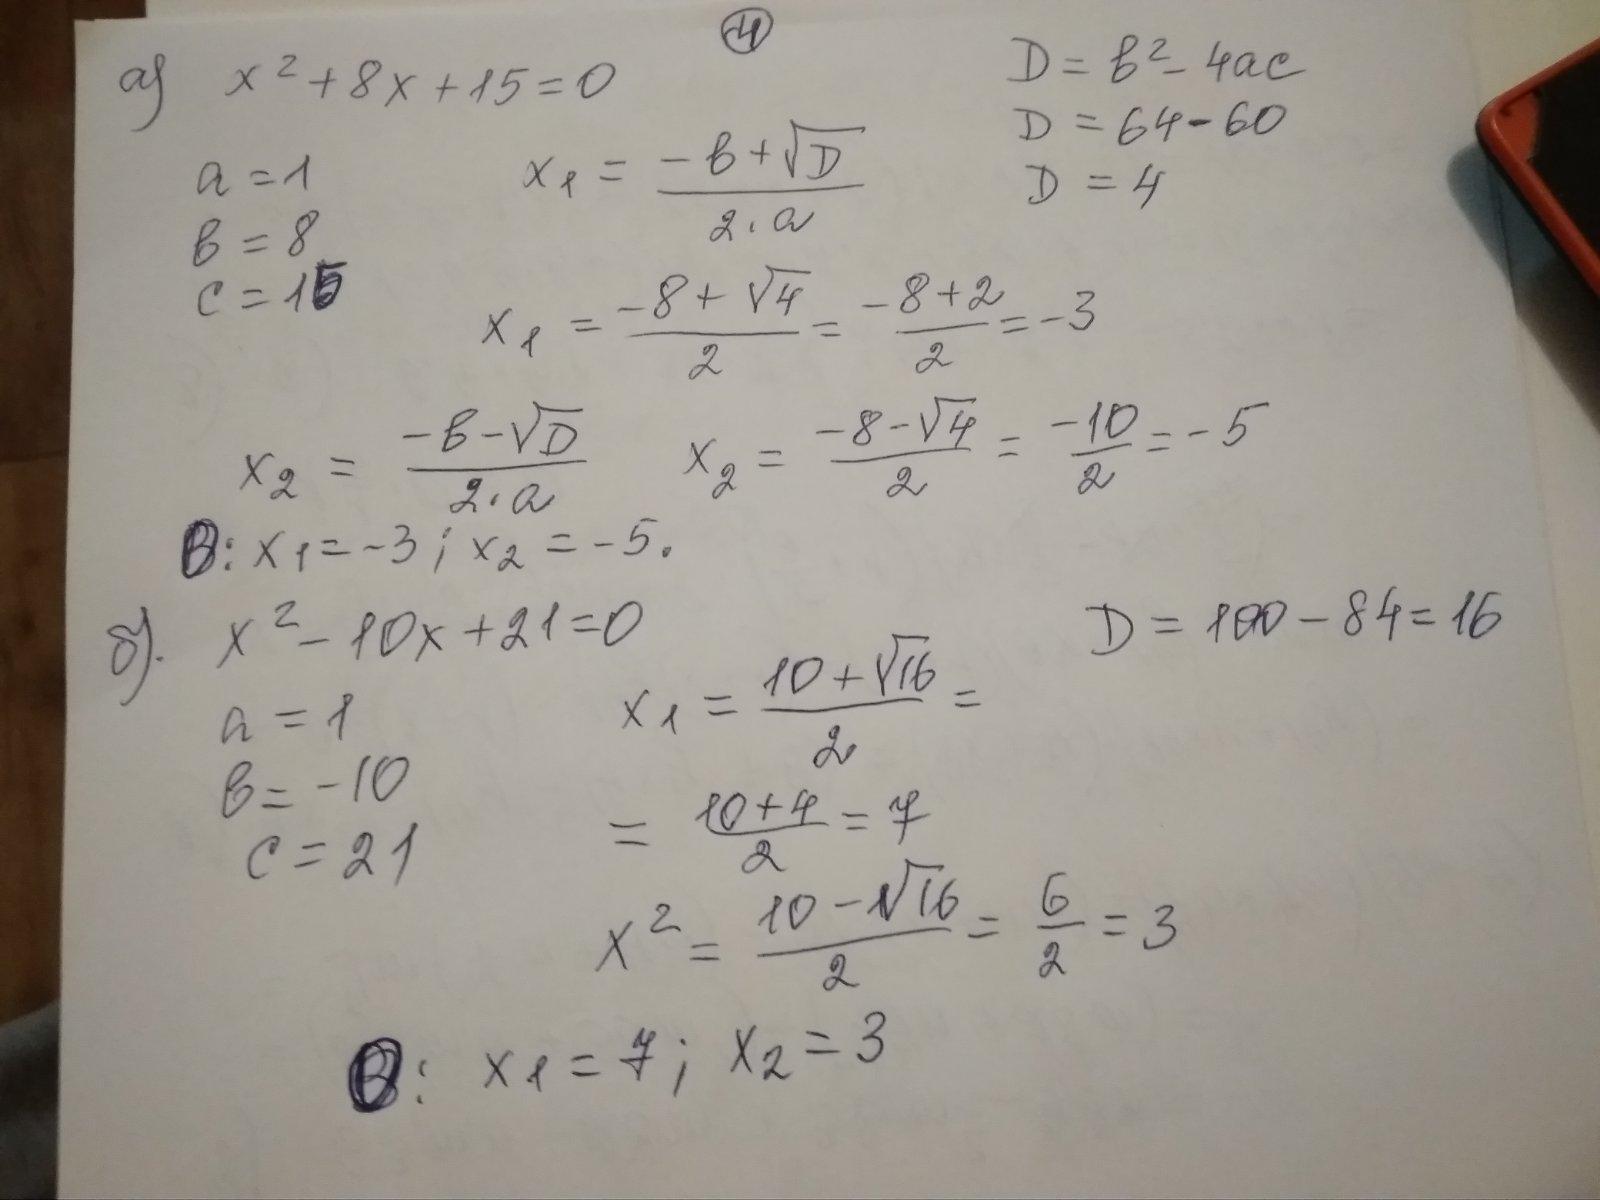 ④
а) x² + 8x + 15 = 0
D = b² - 4ac
D = 64 - 60
D = 4
a = 1
b = 8
c = 15
x₁ = (-b + √D) / (2·a)
x₁ = (-8 + √4) / 2 = (-8 + 2) / 2 = -3
x₂ = (-b - √D) / (2·a) x₂ = (-8 - √4) / 2 = -10 / 2 = -5
В: x₁ = -3; x₂ = -5.
б). x² - 10x + 21 = 0
D = 100 - 84 = 16
a = 1
b = -10
c = 21
x₁ = (10 + √16) / 2 =
= (10 + 4) / 2 = 7
x² = (10 - √16) / 2 = 6 / 2 = 3
В: x₁ = 7; x₂ = 3